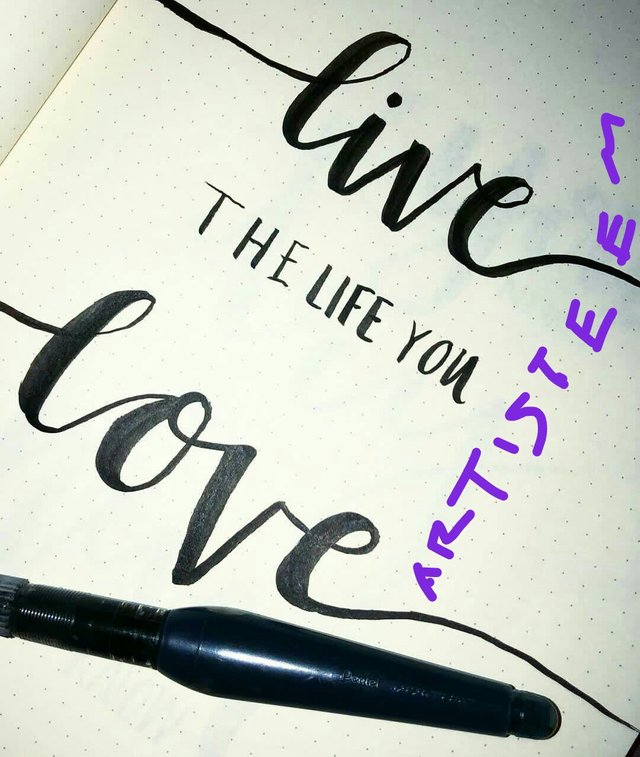 live
THE LIFE YOU
love
ARTISTEEM
Pentel